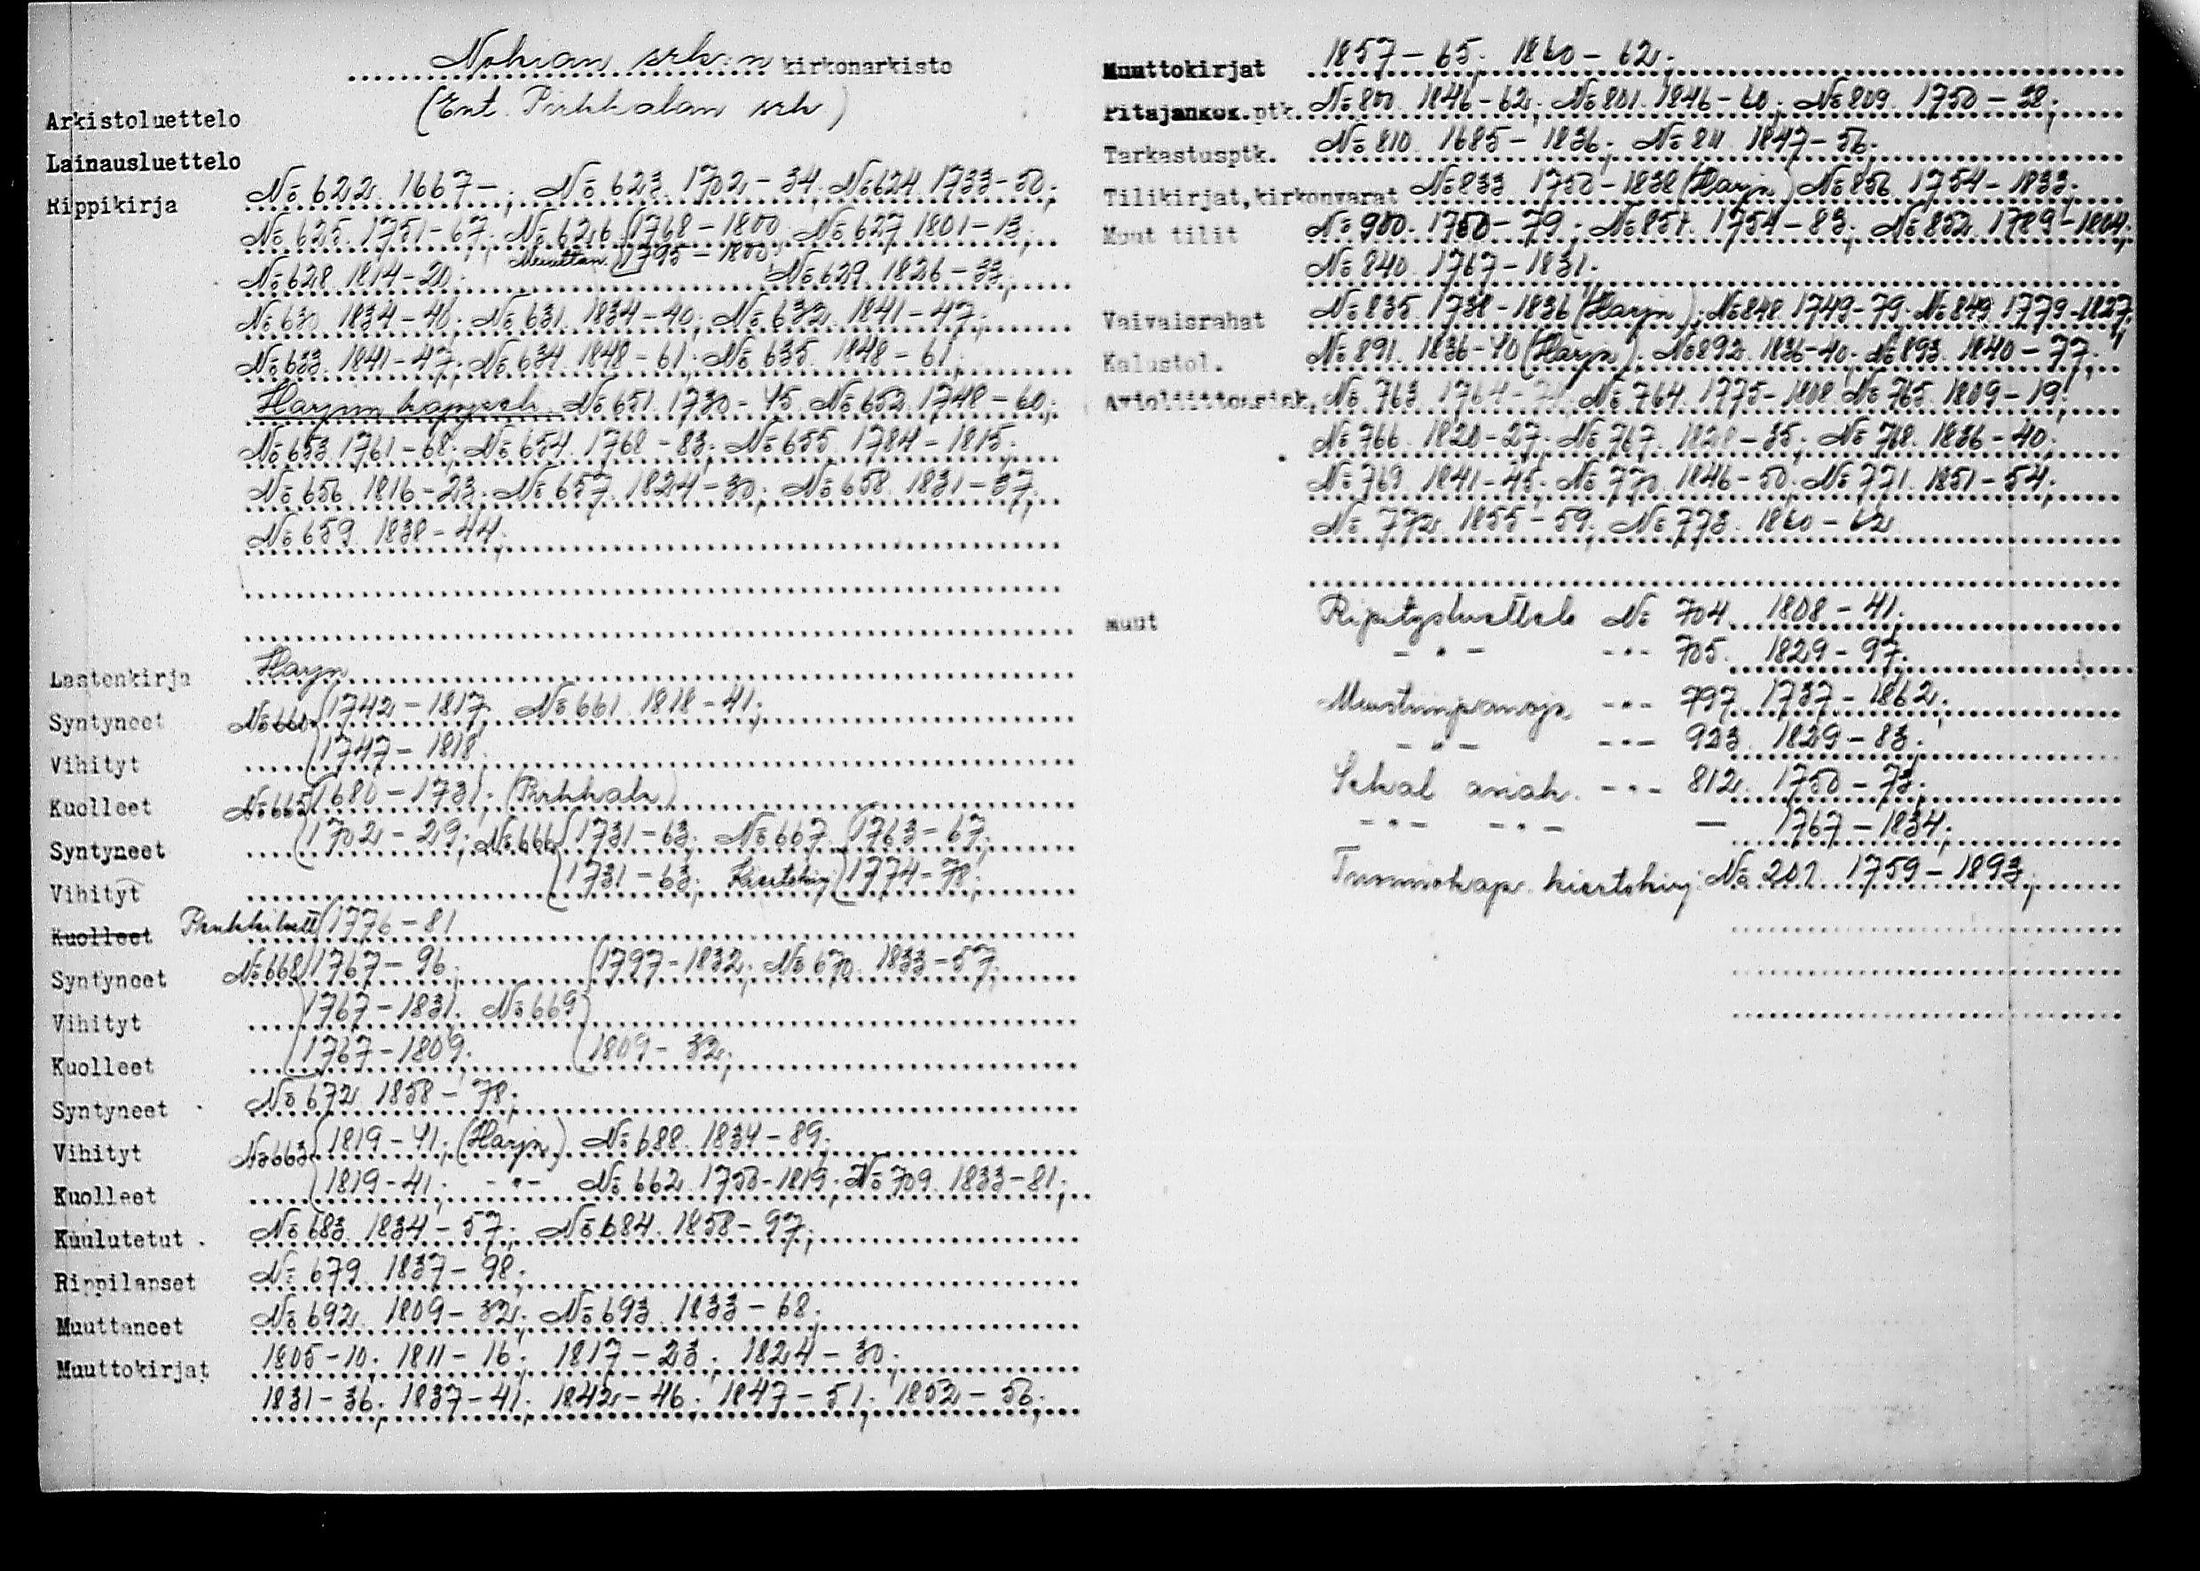 Nokian srk:n kirkonarkisto
(Ent. Pirkkalan srk)
Arkistoluettelo
Lainausluettelo
Rippikirja No 622. 1667-; No 623. 1702-34; No 624. 1733-50;
No 625. 1751-67; No 626 (1768-1800; No 627. 1801-13;
Muuttan. (1795-1800;
No 628. 1814-20; No 629. 1826-33;
No 630. 1834-40; No 631. 1834-40; No 632. 1841-47;
No 633. 1841-47; No 634. 1848-61; No 635. 1848-61;
Harjun kappseh. No 651. 1730-45. No 652. 1748-60;
No 653. 1761-68; No 654. 1768-83; No 655. 1784-1815;
No 656. 1816-23; No 657. 1824-30; No 658. 1831-37;
No 659. 1838-44;
Lastenkirja Harjn
Syntyneet No 660 (1742-1817; No 661. 1818-41;
Vihityt (1747-1818;
Kuolleet No 665 (1680-1731; (Pirkkala)
Syntyneet (1702-29; No 666 (1731-63; No 667. (1763-67;
Vihityt (1731-63; Kiertokirj. (1774-78;
Kuolleet (1776-81
Syntyneet No 668 (1767-96; (1797-1832; No 670. 1833-57;
Vihityt (1767-1831. No 669
Kuolleet (1767-1809; (1809-32;
Syntyneet No 672. 1858-78;
Vihityt No 663 (1819-41; (Harjn) No 688. 1834-89;
Kuolleet (1819-41; -"- No 662. 1750-1819; No 709. 1833-81;
Kuulutetut No 683. 1834-57; No 684. 1858-97;
Rippilapset No 679. 1837-98;
Muuttaneet No 692. 1809-32; No 693. 1833-68;
Muuttokirjat 1805-10; 1811-16; 1817-23; 1824-30;
1831-36; 1837-41; 1842-46; 1847-51; 1852-56;
Muuttokirjat 1857-65; 1860-62;
Pitäjänkok.ptk. No 800. 1846-62; No 801. 1846-60; No 809. 1750-38;
Tarkastusptk. No 810. 1685-1836; No 811. 1847-56;
Tilikirjat,kirkonvarat No 833. 1750-1838 (Harjn) No 850. 1754-1833;
Muut tilit No 900. 1750-79; No 851. 1754-83; No 852. 1789-1804;
No 840. 1767-1831.
Vaivaisrahat No 835. 1738-1836 (Harjn); No 848. 1749-79; No 849. 1779-1827;
Kalustol. No 891. 1836-40 (Harjn); No 892. 1836-40; No 893. 1840-77;
Avioliittoasiak. No 763. 1764-74 No 764. 1775-1808 No 765. 1809-19;
No 766. 1820-27; No 767. 1828-35; No 768. 1836-40;
No 769. 1841-45; No 770. 1846-50; No 771. 1851-54;
No 772. 1855-59; No 773. 1860-62
Muut Ripitysluettelo No 704. 1808-41.
-"- -"- 705. 1829-97.
Muistiinpanoja -"- 797. 1737-1862;
-"- -"- 923. 1829-83.
Sekal asiak. -"- 812. 1750-73;
-"- -"- — 1767-1834;
Tuomiokap. kiertokirj. No 201. 1759-1893;